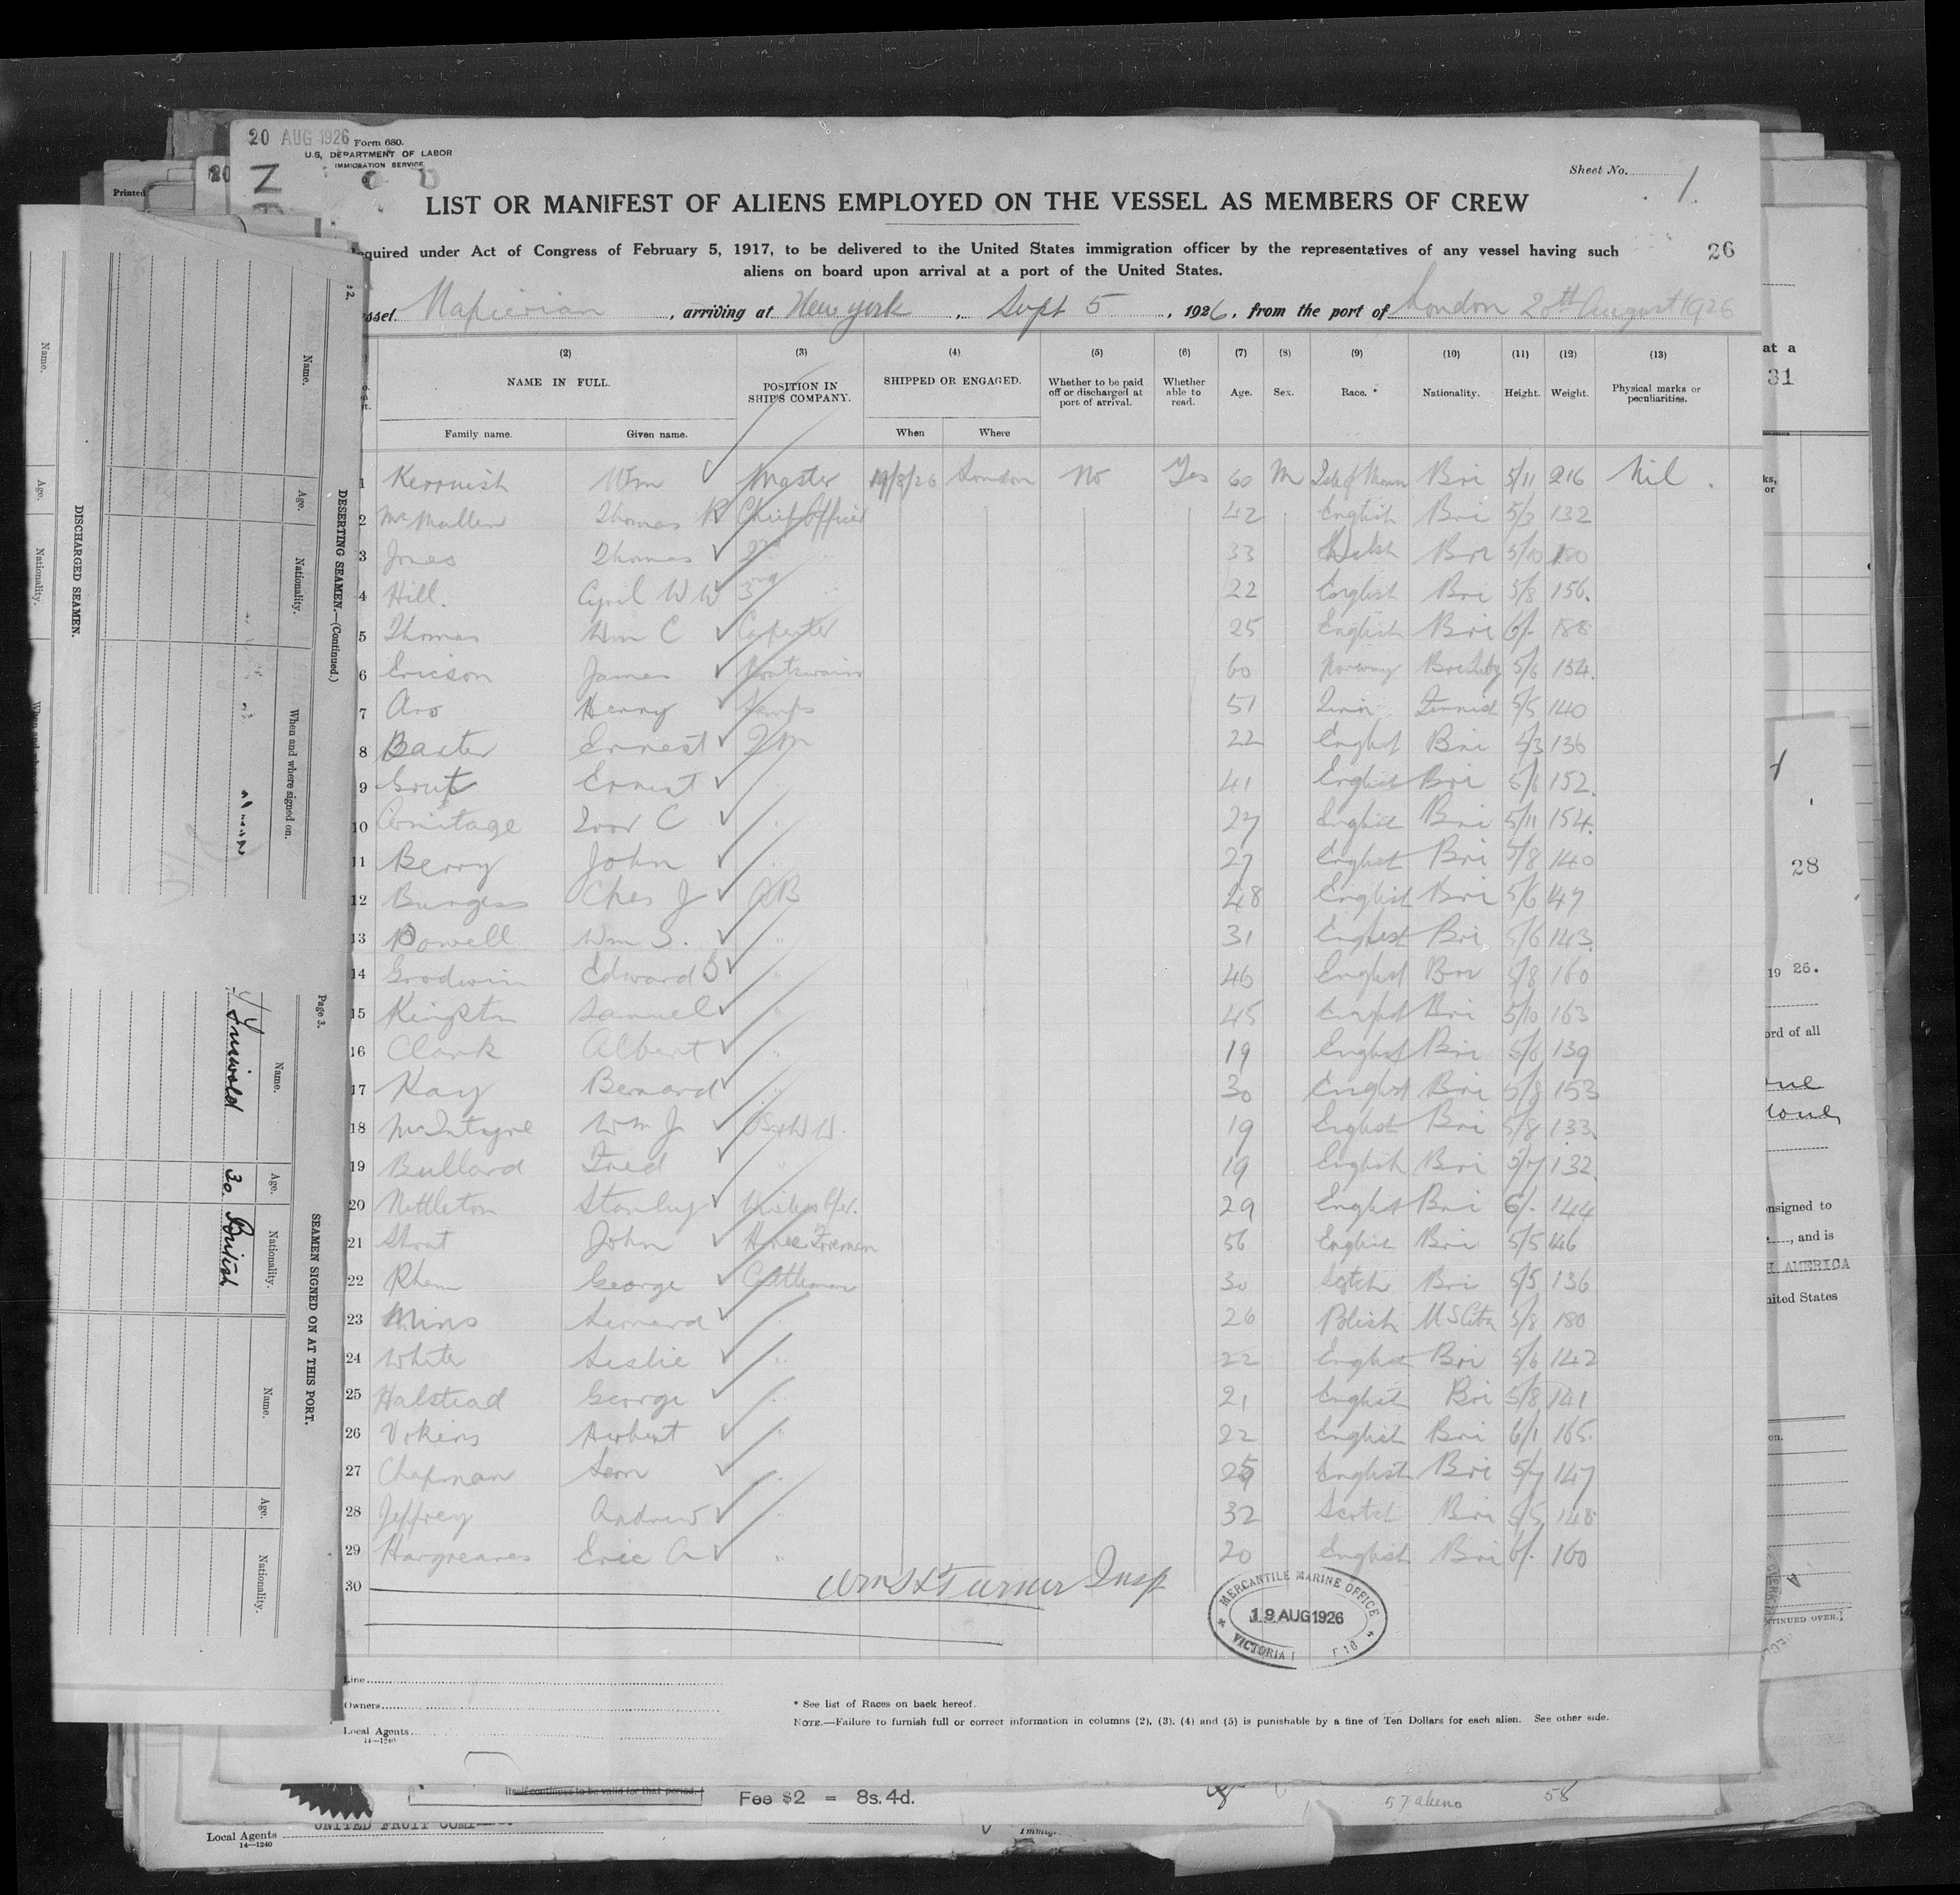 20 AUG 1926
Form 680.
U.S. DEPARTMENT OF LABOR
IMMIGRATION SERVICE
Sheet No. 1
LIST OR MANIFEST OF ALIENS EMPLOYED ON THE VESSEL AS MEMBERS OF CREW
equired under Act of Congress of February 5, 1917, to be delivered to the United States immigration officer by the representatives of any vessel having such
26
aliens on board upon arrival at a port of the United States.
ssel Napierian, arriving at New york, Sept 5, 1926, from the port of London 20th August 1926
(2) (3) (4) (5) (6) (7) (8) (9) (10) (11) (12) (13)
NAME IN FULL. POSITION IN SHIP'S COMPANY. SHIPPED OR ENGAGED. Whether to be paid off or discharged at port of arrival. Whether able to read. Age. Sex. Race.* Nationality. Height. Weight. Physical marks or peculiarities.
Family name. Given name. When Where
1 Kerruish Wm Master 19/8/26 London No Yes 60 M Isle of Mann Bri 5/11 216 Nil.
2 McMullen Thomas R Chief Officer 42 English Bri 5/3 132
3 Jones Thomas 2nd " 33 Welsh Bri 5/10 180
4 Hill. Cyril W W 3rd " 22 English Bri 5/8 156.
5 Thomas Wm C Carpenter 25 English Bri 6/- 188
6 Ericson James Boatswain 60 Norway 5/6 154.
7 Aro Henry Lamps 51 Finn 5/5 140
8 Baxter Ernest QM 22 English Bri 5/3 136
9 Grut Ernest " 41 English Bri 5/6 152.
10 Armitage Ivor C " 27 English Bri 5/11 154.
11 Berry John " 27 English Bri 5/8 140
12 Burgess Chas J AB 48 English Bri 5/6 147
13 Powell Wm S. " 31 English Bri 5/6 143.
14 Goodwin Edward " 46 English Bri 5/8 160
15 Kingston Samuel " 45 English Bri 5/10 163
16 Clark Albert " 19 English Bri 5/6 139
17 Kay Bernard " 30 English Bri 5/8 153
18 McIntyre Wm J 19 English Bri 5/8 133.
19 Bullard Fred " 19 English Bri 5/7 132
20 Nettleton Stanley Wireless Oper. 29 English Bri 6/- 144
21 John Horse Foreman 56 English Bri 5/5 146
22 George Cattleman 30 Scotch Bri 5/5 136
23 Mins Leonard " 26 Polish U S Citzn 5/8 180
24 White Leslie " 22 English Bri 5/6 142
25 Halstead George " 21 English Bri 5/8 141
26 Vokins Herbert " 22 English Bri 6/1 165.
27 Chapman Leon " English Bri 5/7 147
28 Jeffrey Andrew " 32 Scotch Bri 5/5 148
29 Hargreaves Eric A " 20 English Bri 6/- 160
30
Turner Insp
MERCANTILE MARINE OFFICE
19 AUG 1926
VICTORIA
Line
Owners
Local Agents
14—1240
* See list of Races on back hereof.
NOTE.—Failure to furnish full or correct information in columns (2), (3), (4) and (5) is punishable by a fine of Ten Dollars for each alien. See other side.
DISCHARGED SEAMEN.
Name.
Age.
Nationality.
DESERTING SEAMEN.—(Continued.)
Name.
Age.
Nationality.
When and where signed on.
Page 3.
SEAMEN SIGNED ON AT THIS PORT.
Name. Age. Nationality.
30. British
Name. Age. Nationality.
Printed
at a
31
28
19 26.
ord of all
nsigned to
, and is
H AMERICA
nited States
NTINUED OVER.]
itself continues to be valid for that period.
Fee $2 = 8s. 4d.
57 aliens
58
UNITED FRUIT COMP
Local Agents
14—1240